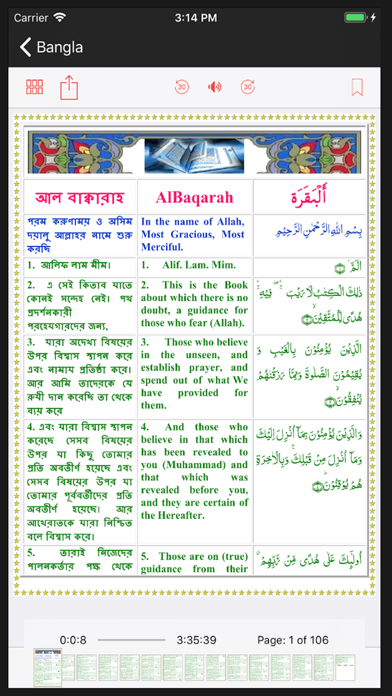 Carrier 3:14 PM
Bangla
30 30
আল বাক্বারাহ
AlBaqarah
أَلْبَقَرَة
পরম করুণাময় ও অসিম
দয়ালু আল্লাহর নামে শুরু
করছি
In the name of Allah,
Most Gracious, Most
Merciful.
بِسْمِ اللهِ الرَّحْمٰنِ الرَّحِيْمِ
1. আলিফ লাম মীম।
1. Alif. Lam. Mim.
الٓمّٓ
2. এ সেই কিতাব যাতে
কোনই সন্দেহ নেই। পথ
প্রদর্শনকারী
পরহেযগারদের জন্য,
2. This is the Book
about which there is no
doubt, a guidance for
those who fear (Allah).
ذٰلِكَ الْكِتٰبُ لَا رَيْبَ ۛ فِيْهِ ۛ
هُدًى لِّلْمُتَّقِيْنَ
3. যারা অদেখা বিষয়ের
উপর বিশ্বাস স্থাপন করে
এবং নামায প্রতিষ্ঠা করে।
আর আমি তাদেরকে যে
রুযী দান করেছি তা থেকে
ব্যয় করে
3. Those who believe
in the unseen, and
establish prayer, and
spend out of what We
have provided for
them.
الَّذِيْنَ يُؤْمِنُوْنَ بِالْغَيْبِ وَ
يُقِيْمُوْنَ الصَّلٰوةَ وَمِمَّا رَزَقْنٰهُمْ
يُنْفِقُوْنَ
4. এবং যারা বিশ্বাস স্থাপন
করেছে সেসব বিষয়ের
উপর যা কিছু তোমার
প্রতি অবতীর্ণ হয়েছে এবং
সেসব বিষয়ের উপর যা
তোমার পূর্ববর্তীদের প্রতি
অবতীর্ণ হয়েছে। আর
আখেরাতকে যারা নিশ্চিত
বলে বিশ্বাস করে।
4. And those who
believe in that which
has been revealed to
you (Muhammad) and
that which was
revealed before you,
and they are certain of
the Hereafter.
وَالَّذِيْنَ يُؤْمِنُوْنَ بِمَآ اُنْزِلَ اِلَيْكَ
وَمَآ اُنْزِلَ مِنْ قَبْلِكَ وَبِالْاٰخِرَةِ
هُمْ يُوْقِنُوْنَ
5. তারাই নিজেদের
পালনকর্তার পক্ষ থেকে
5. Those are on (true)
guidance from their
اُولٰٓئِكَ عَلٰى هُدًى مِّنْ رَّبِّهِمْ
0:0:8 3:35:39 Page: 1 of 106